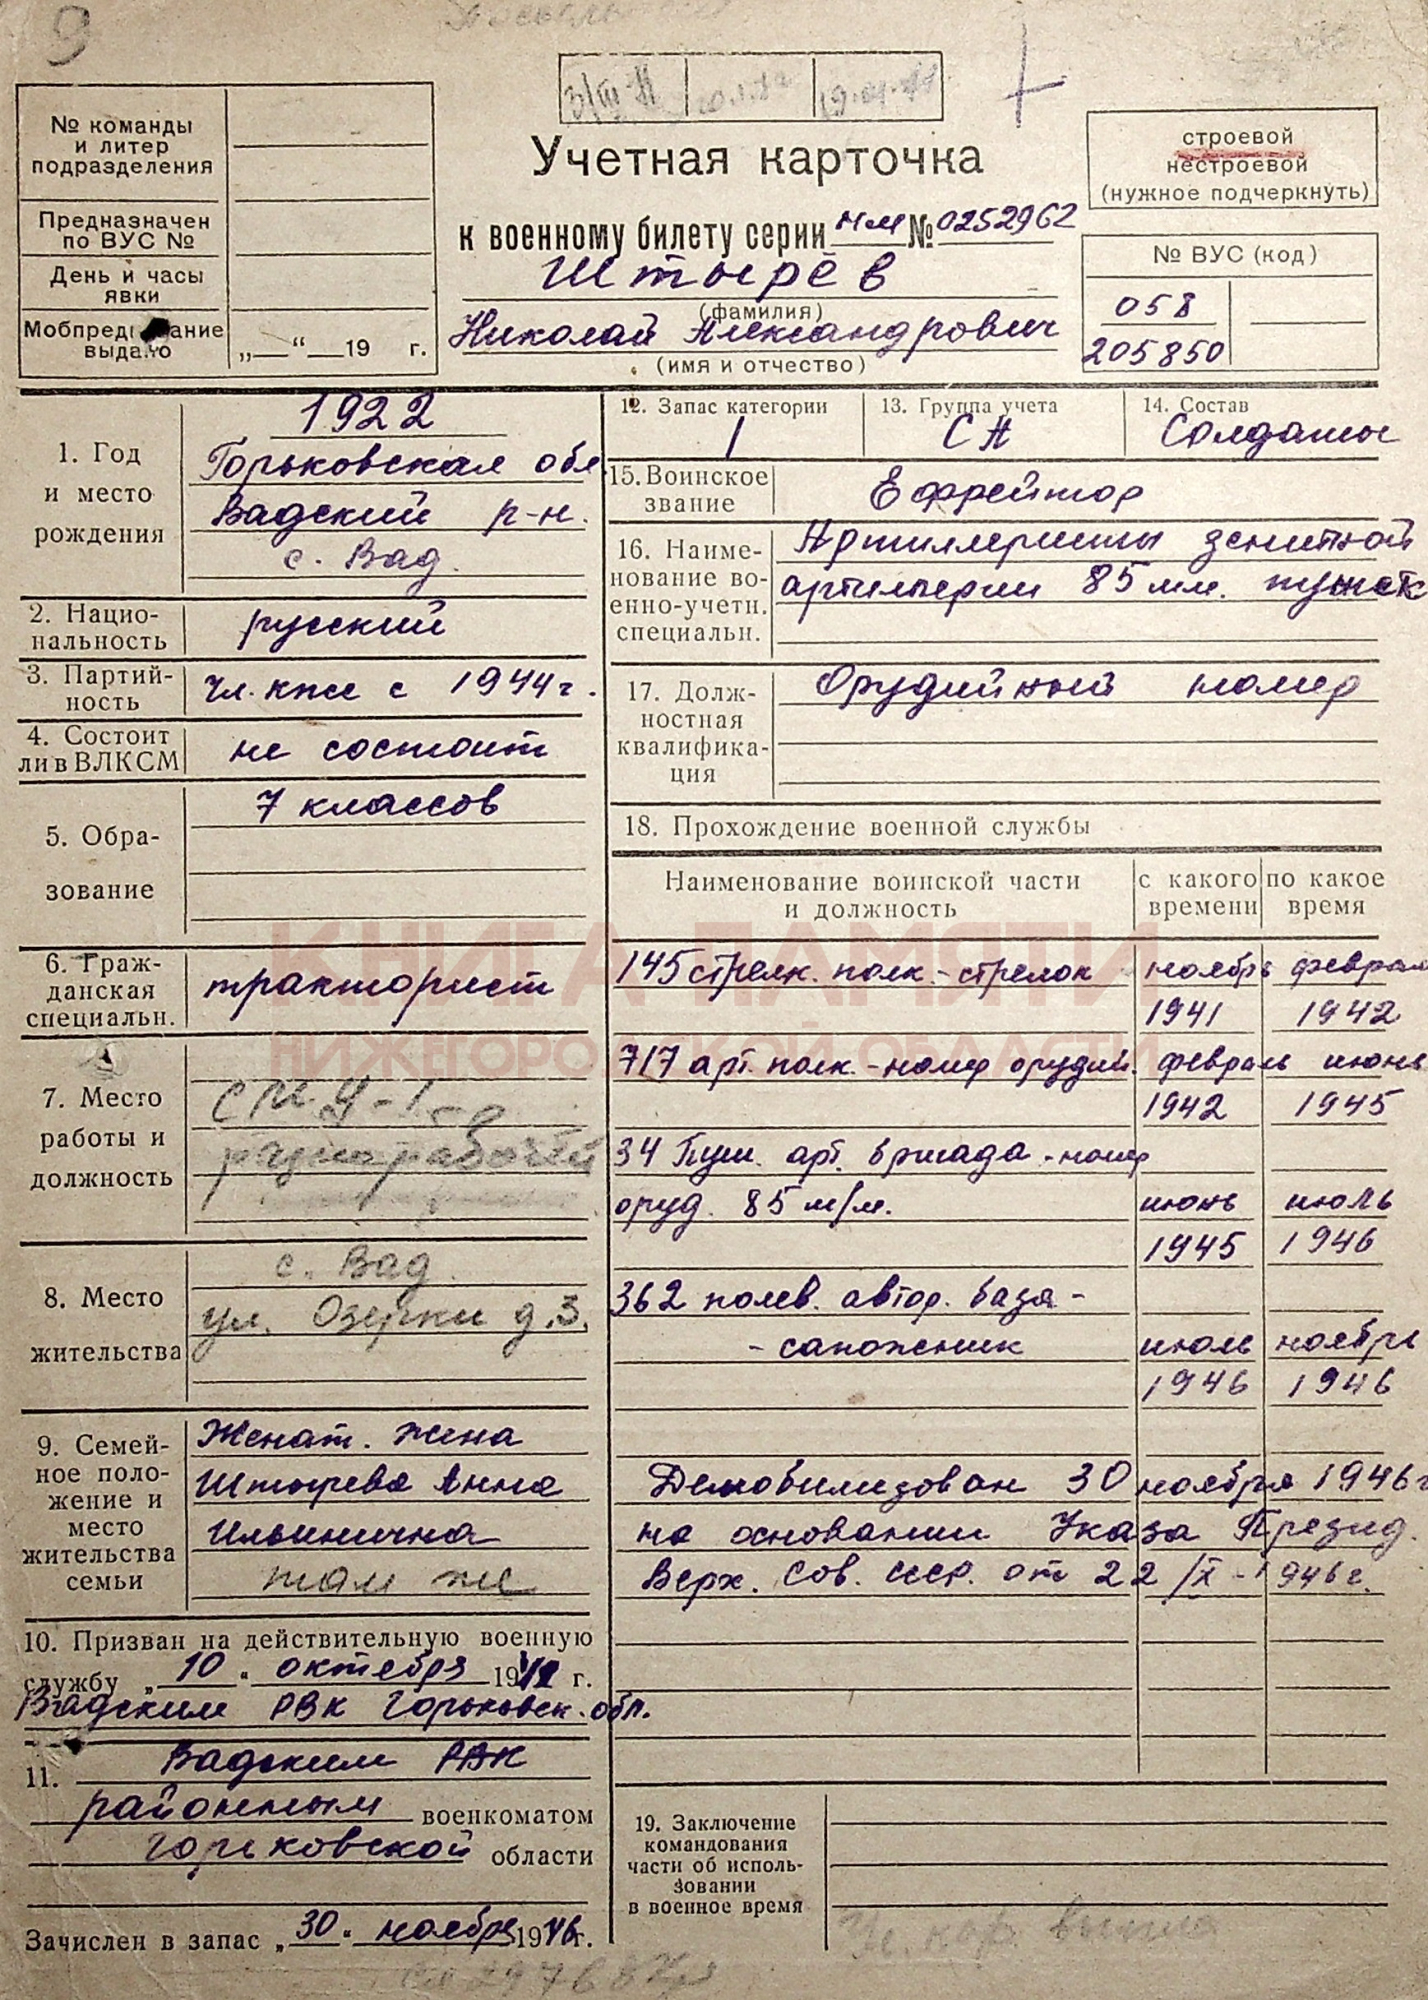 9
3/III-71
19.01.71
№ команды
и литер
подразделения
Предназначен
по ВУС №
День и часы
явки
Мобпред ание
выдано
„ “ 19 г.
Учетная карточка
к военному билету серии НМ № 0252962
Штырёв
(фамилия)
Николай Александрович
(имя и отчество)
строевой
нестроевой
(нужное подчеркнуть)
№ ВУС (код)
058
205850
1. Год
и место
рождения
1922
Горьковская обл
Вадский р-н.
с. Вад.
2. Нацио-
нальность
русский
3. Партий-
ность
чл. кпсс с 1944 г.
4. Состоит
ли в ВЛКСМ
не состоит
5. Обра-
зование
7 классов
6. Граж-
данская
специальн.
тракторист
7. Место
работы и
должность
разнорабочий
8. Место
жительства
с. Вад
ул. Озерки д.3.
9. Семей-
ное поло-
жение и
место
жительства
семьи
Женат. Жена
Штырева Анна
Ильинична
там же
10. Призван на действительную военную
службу „10“ октября 1941 г.
Вадским РВК Горьковск. обл.
11. Вадским РВК
районным военкоматом
Горьковской области
Зачислен в запас „30“ ноября 1946 г.
12. Запас категории
1
13. Группа учета
СА
14. Состав
Солдаты
15. Воинское
звание
Ефрейтор
16. Наиме-
нование во-
енно-учетн.
специальн.
Артиллеристы зенитной
артилерии 85 мм. пушек
17. Долж-
ностная
квалифика-
ция
Орудийный номер
18. Прохождение военной службы
Наименование воинской части
и должность
с какого
времени
по какое
время
145 стрелк. полк. - стрелок ноябрь февраль
1941 1942
717 арт. полк. - номер орудий. февраль июнь
1942 1945
34 Пуш. арт. бригада - номер
оруд. 85 м/м. июнь июль
1945 1946
362 полев. автор. база -
- сапожник июль ноябрь
1946 1946
Демобилизован 30 ноября 1946 г
на основании Указа Презид.
Верх. Сов. ссср. от 22/X - 1946 г.
19. Заключение
командования
части об исполь-
зовании
в военное время
КНИГА ПАМЯТИ
НИЖЕГОРОДСКОЙ ОБЛАСТИ